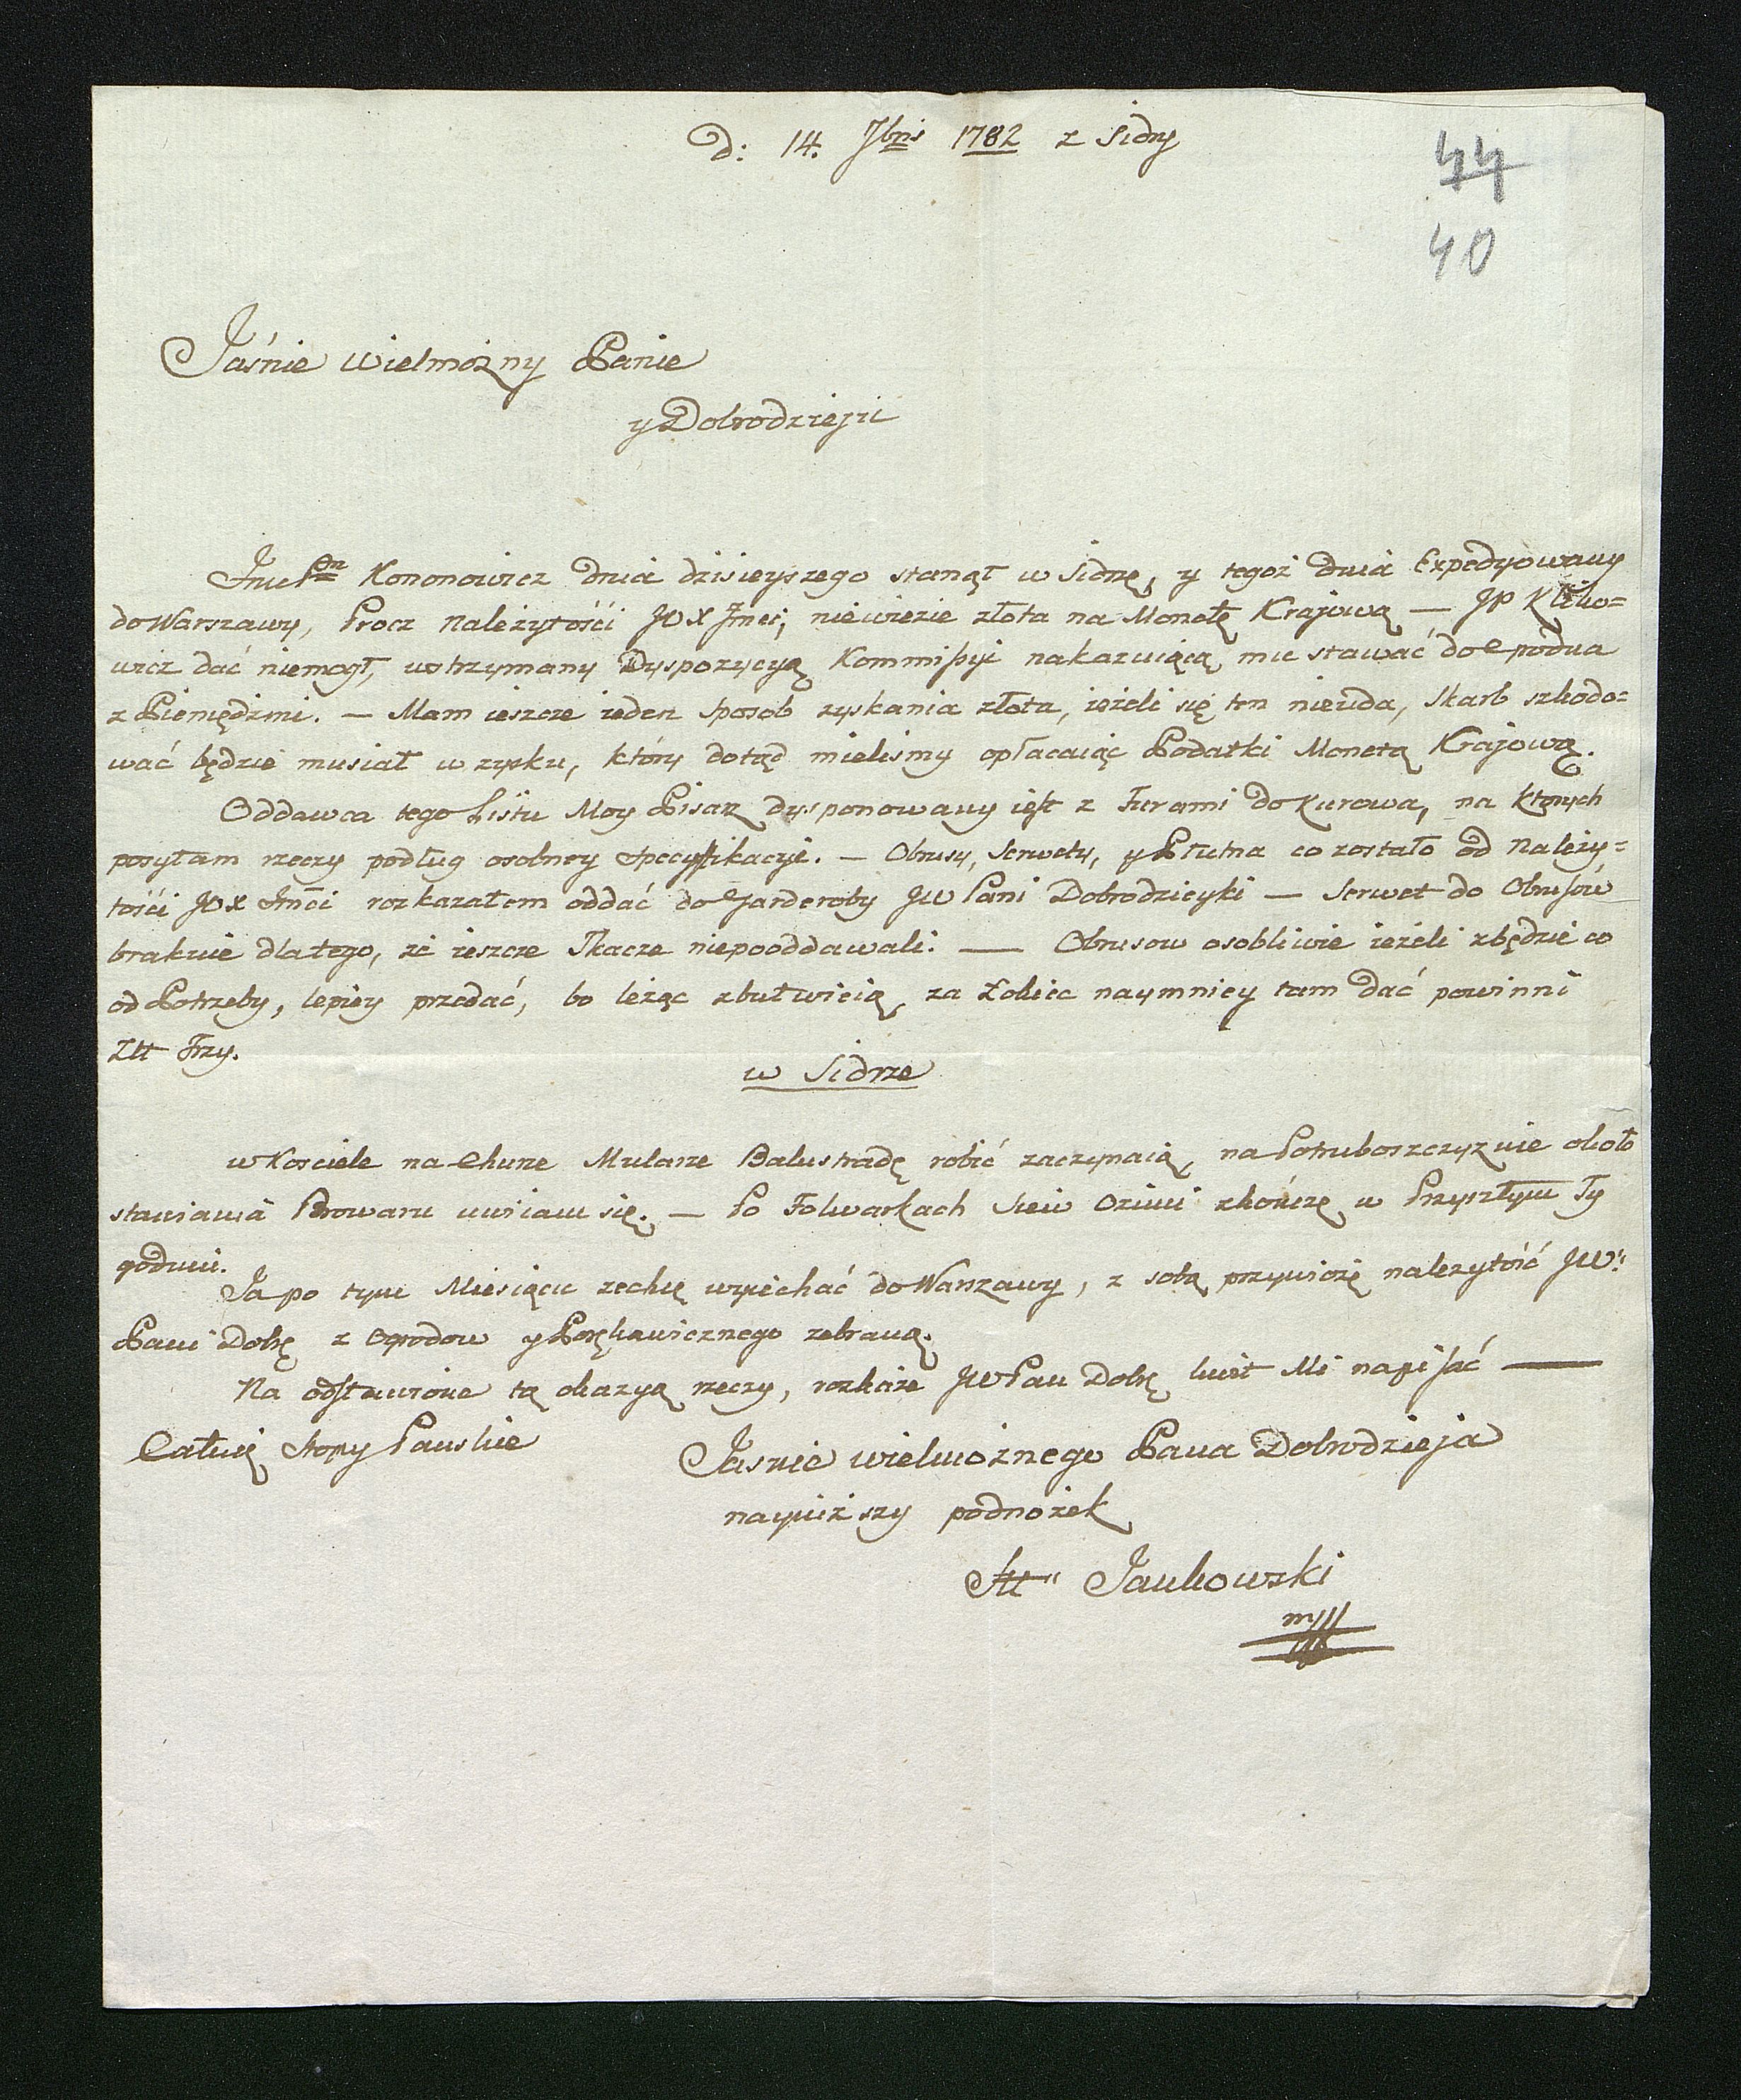 D: 14. 7bris 1782 z Sidry
44
40
Jaśnie Wielmożny Panie
y Dobrodzieju
JmcPan Kononowicz dnia dzisieyszego stanął w Sidrze, y tegoż dnia Expedyowany
do Warszawy, Procz należytośći JWX Jmci, niewiezie złota na Monetę Krajową — JP Kliko=
wicz dać niemogł, wotrzymany Dyspozycyą Kommißyi nakazuiącą mu stawać do Grodna
z Pieniędzmi. — Mam ieszcze ieden Sposob zyskania złota, ieżeli się ten nieuda, Skarb szkodo=
wać będzie musiał w zysku, ktory dotąd mieliśmy opłacaiąc Podatki Monetą Krajową.
Oddawca tego Listu Moy Pisarz dysponowany iest z Furami do Kurowa, na ktorych
posyłam rzeczy podług osobney Specyfikacyi. — Obrusy, Serwety, y Płutna co zostało od Należy=
tośći JWX Jmći rozkazałem oddać do Garderoby JW Pani Dobrodzieyki — Serwet do Obrusow
brakuie dlatego, że ieszcze Tkacze niepooddawali. — Obrusow osobliwie ieżeli zbędzie co
od Potrzeby, lepiey przedać, bo leżąc zbutwieią, za Łokieć naymniey tam dać powinni
Złt Trzy.
w Sidrze
w Kosciele na Churze Mularze Balustradę robić zaczynaią, na Potruboszczyznie około
stawiania Browaru uwiiam się. — Po Folwarkach Siew Ozimi zkończę w Przyszłym Ty
godniu.
Ja po tym Miesiącu zechcę wyiechać do Warszawy, z sobą przywiozę należytość JW:
Pani Dobr z Ogrodow y Poręhawicznego zebraną.
Na odstawione tą okazyą rzeczy, rozkaże JWPan Dobr kwit Mi napisać —
Całuię Stopy Panskie
Jasnie wielmożnego Pana Dobrodzieja
nayniższy podnożek
Jankowski
mp